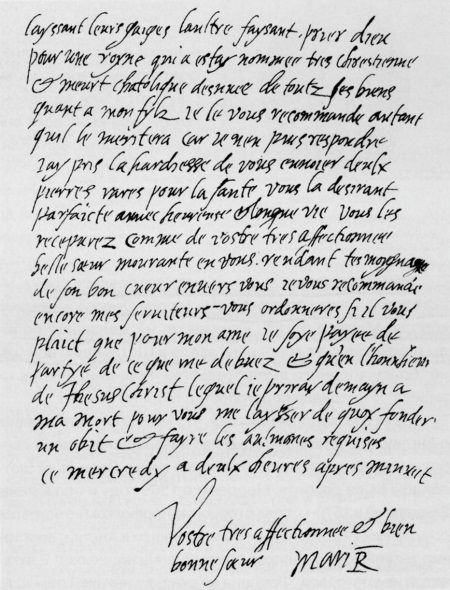 layssant leurs gaiges laultre faysant prier dieu
pour une royne qui a estay nommee tres chrestienne
& meurt chatolique desnuee de toutz ses biens
quant a mon fylz ie le vous recommande autant
quil le meritera car ie nen puis respondre
iay pris la hardiesse de vous enuoier deulx
pierres rares pour la sante vous la desirant
parfaicte auuec heureuse & longue vie vous les
recepurez comme de vostre tres affectionnee
belle sœur mourante en vous rendant tesmoygnage
de son bon cueur enuers vous ie vous recommande
encore mes seruiteurs vous ordonneres si il vous
plaict que pour mon ame ie soye payee de
partye de ce que me debuez & quen lhonneur
de Jhesus Christ lequel ie priray demayn a
ma mort pour vous me laysser de quoy fonder
un obit & fayre les aumones requises
ce mercredy a deulx heures apres minuit
Vostre tres affectionnee & bien
bonne sœur MariR